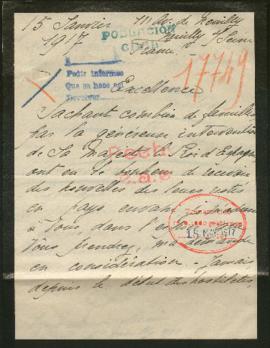 15 Janvier 111 Av. de Neuilly
1917 Neuilly s/ Seine
France
POBLACION
CIVIL
Pedir informes
Que se hace así
17749
Excellence
Sachant combien de familles
par la généreuse intervention
de Sa Majesté le Roi d'Espagne
ont eu le bonheur de recevoir
des nouvelles des leurs restés
en pays envahi
à Vous, dans l'espoir
Vous prendrez ma demande
en considération. Jamais
depuis le début des hostilités